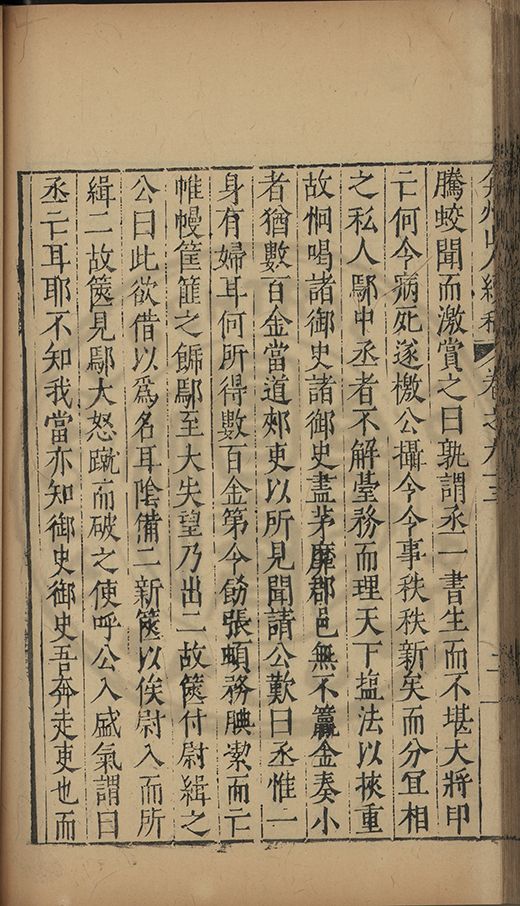 弇州山人續稿 卷之九十三
騰蛟聞而激賞之曰孰謂丞一書生而不堪大將印
亡何令病死遂檄公攝令令事秩秩新矣而分冝相
之私人鄢中丞者不解臺務而理天下塩法以挾重
故恫喝諸御史諸御史盡茅靡郡邑無不籯金奏小
者猶數百金當道郊吏以所見聞請公歎曰丞惟一
身有婦耳何所得數百金第令飭張頓務腆潔而亡
帷幔筐篚之餙鄢至大失望乃出二故篋付尉緝之
公曰此欲借以爲名耳陰備二新篋以俟尉入而所
緝二故篋見鄢大怒蹴而破之使呼公入盛氣謂曰
丞亡耳耶不知我當亦知御史御史吾奔走吏也而